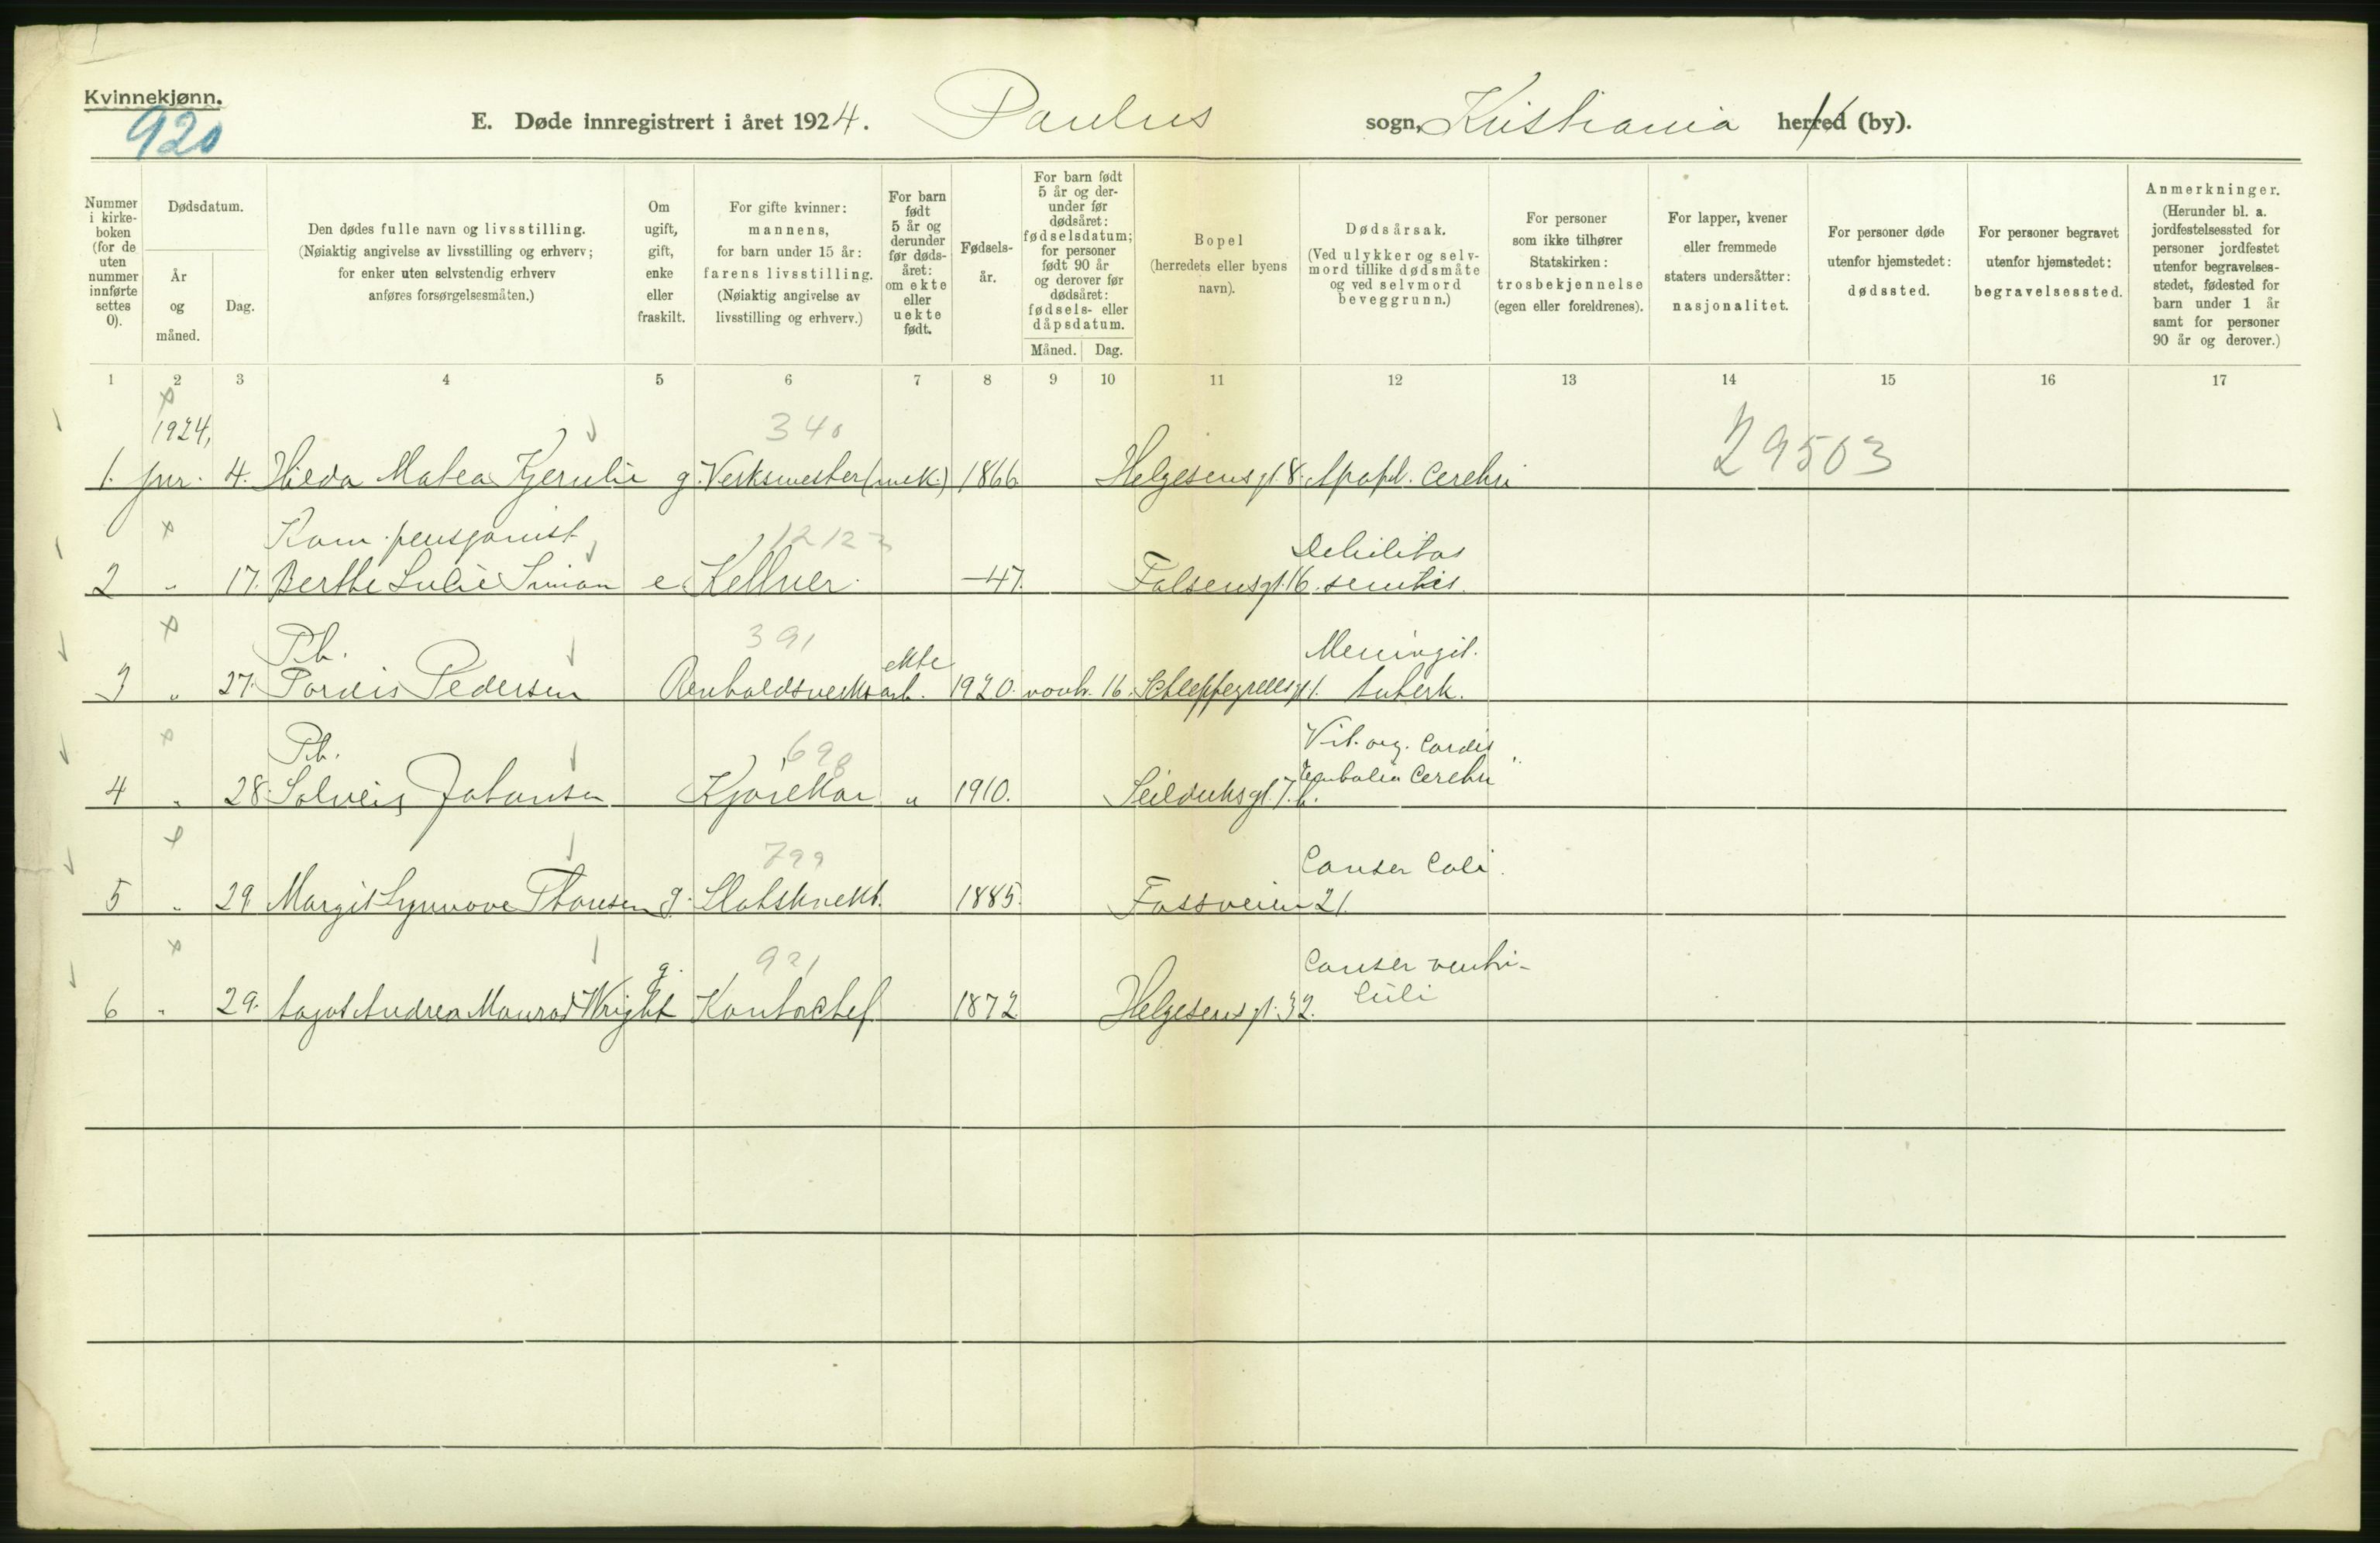 Kvinnekjønn.
920
E. Døde innregistrert i året 1924. Paulus sogn, Kristiania herred (by).
Nummer i kirke-boken (for de uten nummer innførte settes 0).
Dødsdatum.
År og måned.
Dag.
Den dødes fulle navn og livsstilling.
(Nøiaktig angivelse av livsstilling og erhverv;
for enker uten selvstendig erhverv
anføres forsørgelsesmåten.)
Om ugift, gift, enke eller fraskilt.
For gifte kvinner:
mannens,
for barn under 15 år:
farens livsstilling.
(Nøiaktig angivelse av
livsstilling og erhverv.)
For barn født 5 år og derunder før døds-året: om ekte eller uekte født.
Fødsels-år.
For barn født 5 år og der-under før dødsåret: fødselsdatum; for personer født 90 år og derover før dødsåret: fødsels- eller dåpsdatum.
Måned. Dag.
Bopel
(herredets eller byens
navn).
Dødsårsak.
(Ved ulykker og selv-
mord tillike dødsmåte
og ved selvmord
beveggrunn.)
For personer
som ikke tilhører
Statskirken:
trosbekjennelse
(egen eller foreldrenes).
For lapper, kvener
eller fremmede
staters undersåtter:
nasjonalitet.
For personer døde
utenfor hjemstedet:
dødssted.
For personer begravet
utenfor hjemstedet:
begravelsessted.
Anmerkninger.
(Herunder bl. a.
jordfestelsessted for
personer jordfestet
utenfor begravelses-
stedet, fødested for
barn under 1 år
samt for personer
90 år og derover.)
1 2 3 4 5 6 7 8 9 10 11 12 13 14 15 16 17
1924, 340 29503
1. jnr. 4. Hilda Matea Kjerulie g. Verksmester (mek.) 1866 Helgesens gt. 8. Apopl. cerebri
Kom. pensjonist 12122 Debilitas
2 " 17. Berthe Julie Simon e Kellner. -47. Falsensgt. 16. senilis.
Pb. 391 ekte Meningit.
3 " 27. Pordis Pedersen Renholdsverksarb. 1920. novb. 16. Schleppegrellsgt. 1. tuberk.
Pb. 698 Vit. org. cordis
Embolia cerebri
4 " 28. Solveig Johansen Kjørekar " 1910. Seilduksgt. 7. b.
799 Canser coli.
5 " 29 Margit Synnøve Thoresen g. Slotsknekt. 1885. Fossveien 21.
g. 921 Canser ventri-
6 " 29. Aagot Andrea Monrad Wright Kontorchef 1872 Helgesens gt. 32. culi